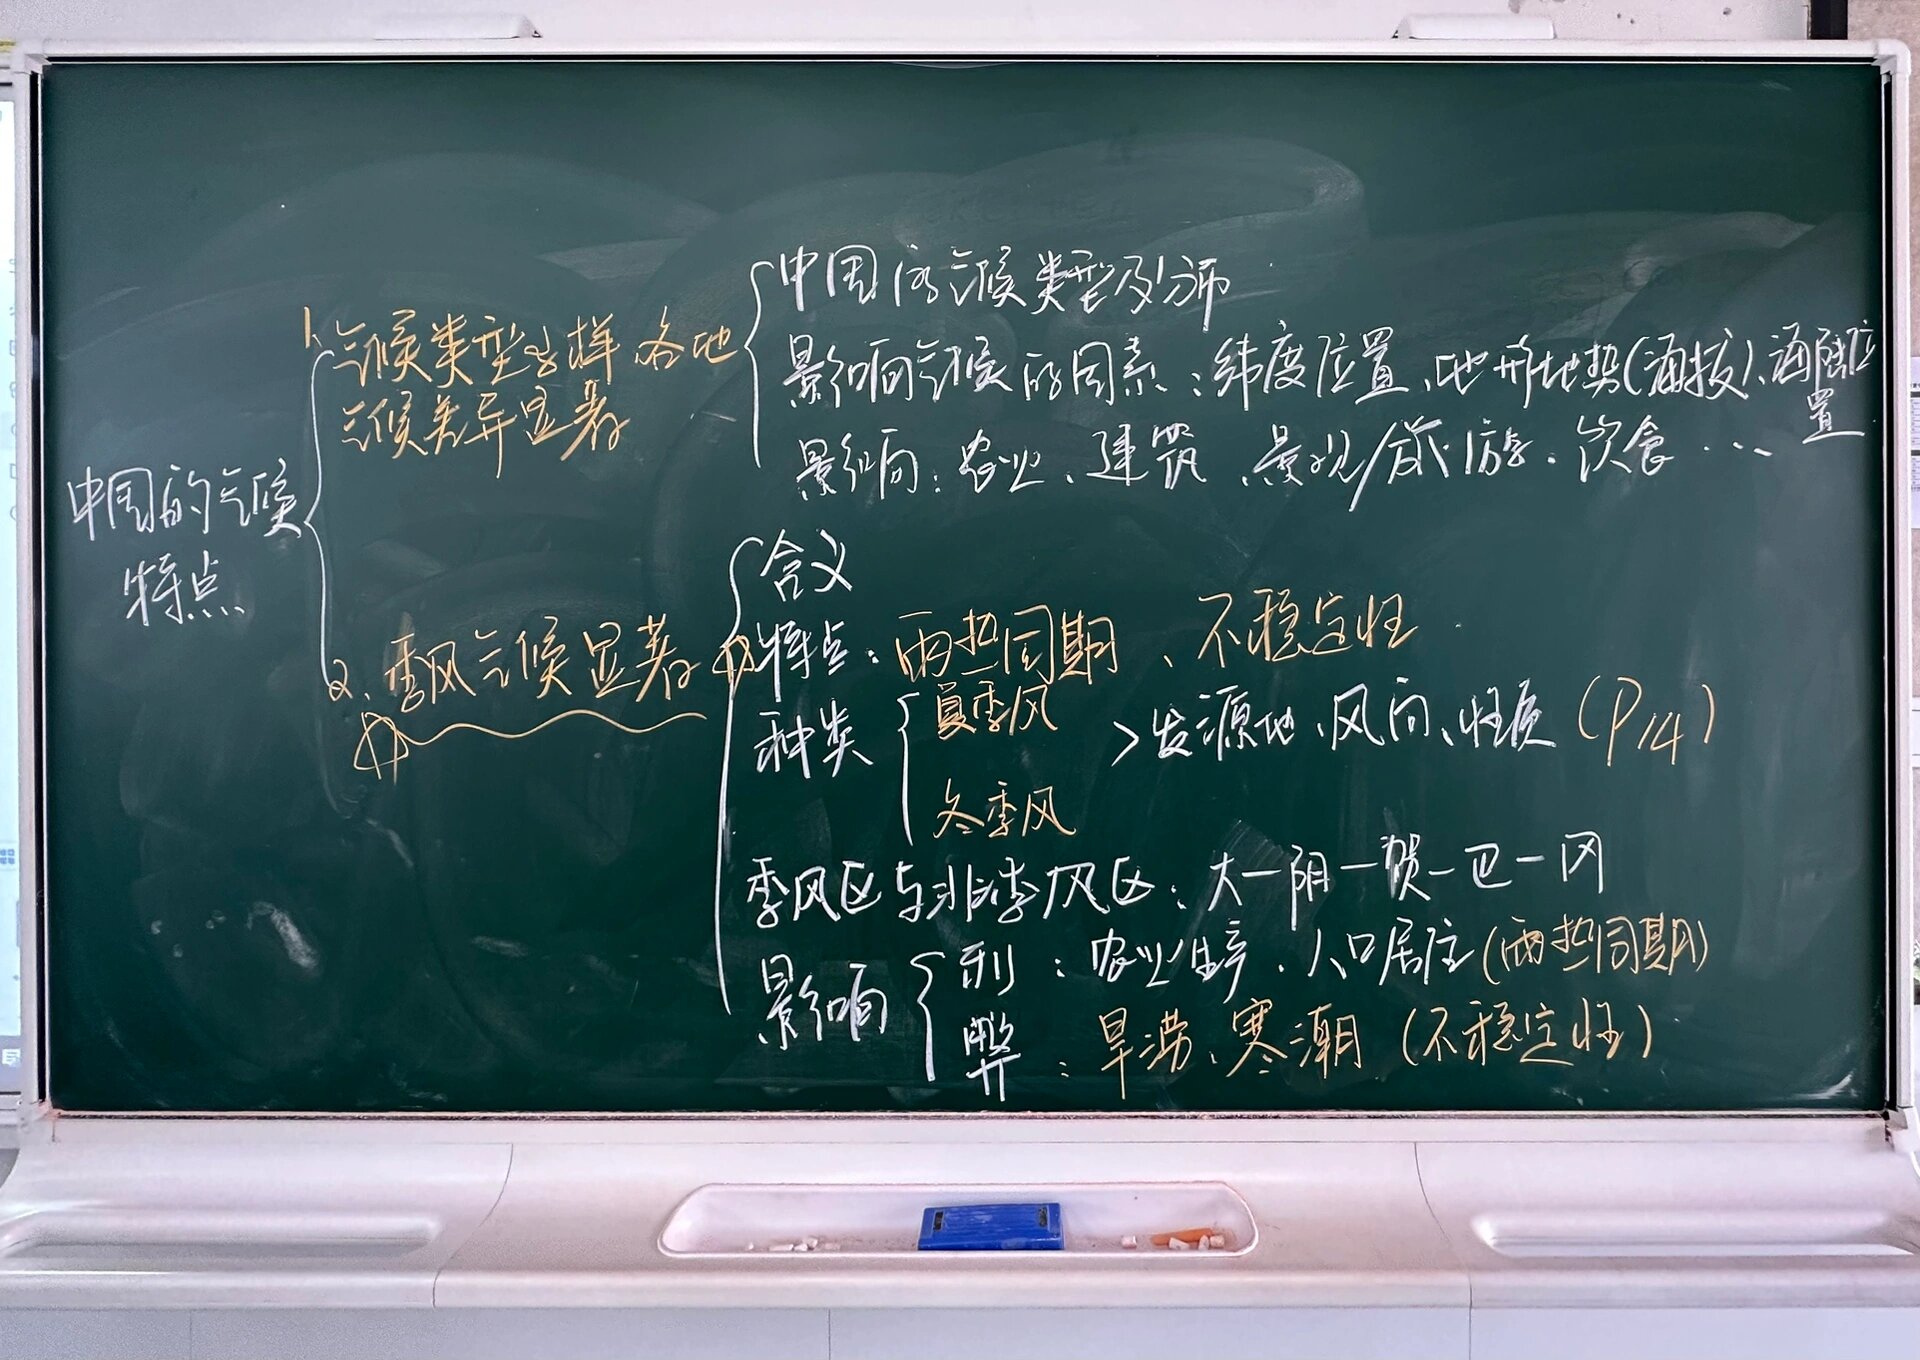 中国的气候
特点
1. 气候类型多样 各地
气候差异显著
中国的气候类型及分布
影响气候的因素：纬度位置、地形地势(海拔)、海陆位
置
影响：农业、建筑、景观/旅游、饮食…
2. 季风气候显著
含义
特点：雨热同期、不稳定性
种类
夏季风
冬季风
>发源地、风向、性质(P14)
季风区与非季风区：大一阴一贺一巴一冈
影响
利：农业生产、人口居住(雨热同期)
弊：旱涝、寒潮(不稳定性)